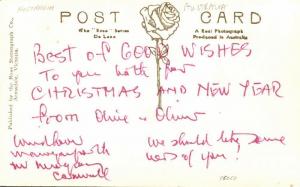 AUSTRALIA
POST CARD
The "Rose" Series
De Luxe
A Real Photograph
Produced in Australia
Published by the Rose Stereograph Co.,
Armadale, Victoria.
Best of Good WISHES
To you both for
CHRISTMAS AND NEW YEAR
from Olive & Oliver
We should like some
news of you!